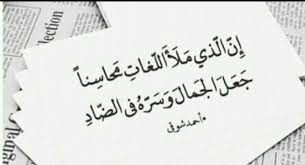 إِنَّ الَّذِي مَلَأَ اللُّغَاتِ مَحَاسِناً
جَعَلَ الجَمَالَ وَسَرَّهُ فِي الضَّادِ
أحمد شوقي